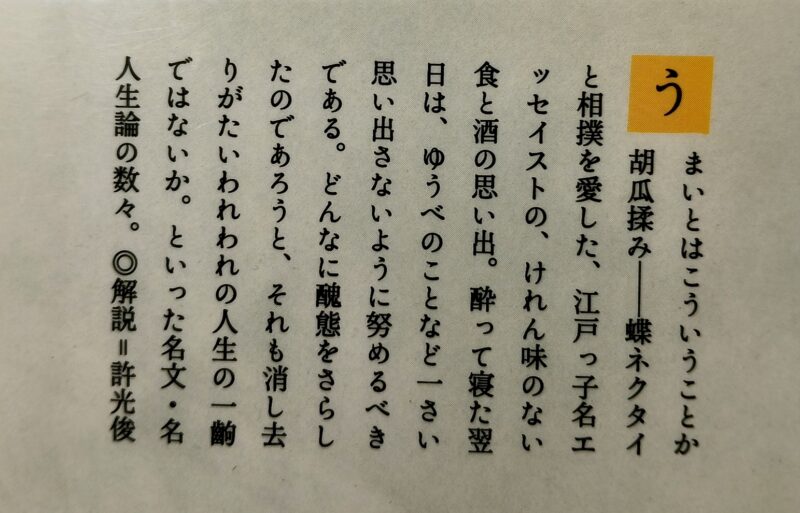 う
まいとはこういうことか
胡瓜揉み――蝶ネクタイ
と相撲を愛した、江戸っ子名エ
ッセイストの、けれん味のない
食と酒の思い出。酔って寝た翌
日は、ゆうべのことなど一さい
思い出さないように努めるべき
である。どんなに醜態をさらし
たのであろうと、それも消し去
りがたいわれわれの人生の一齣
ではないか。といった名文・名
人生論の数々。◎解説＝許光俊